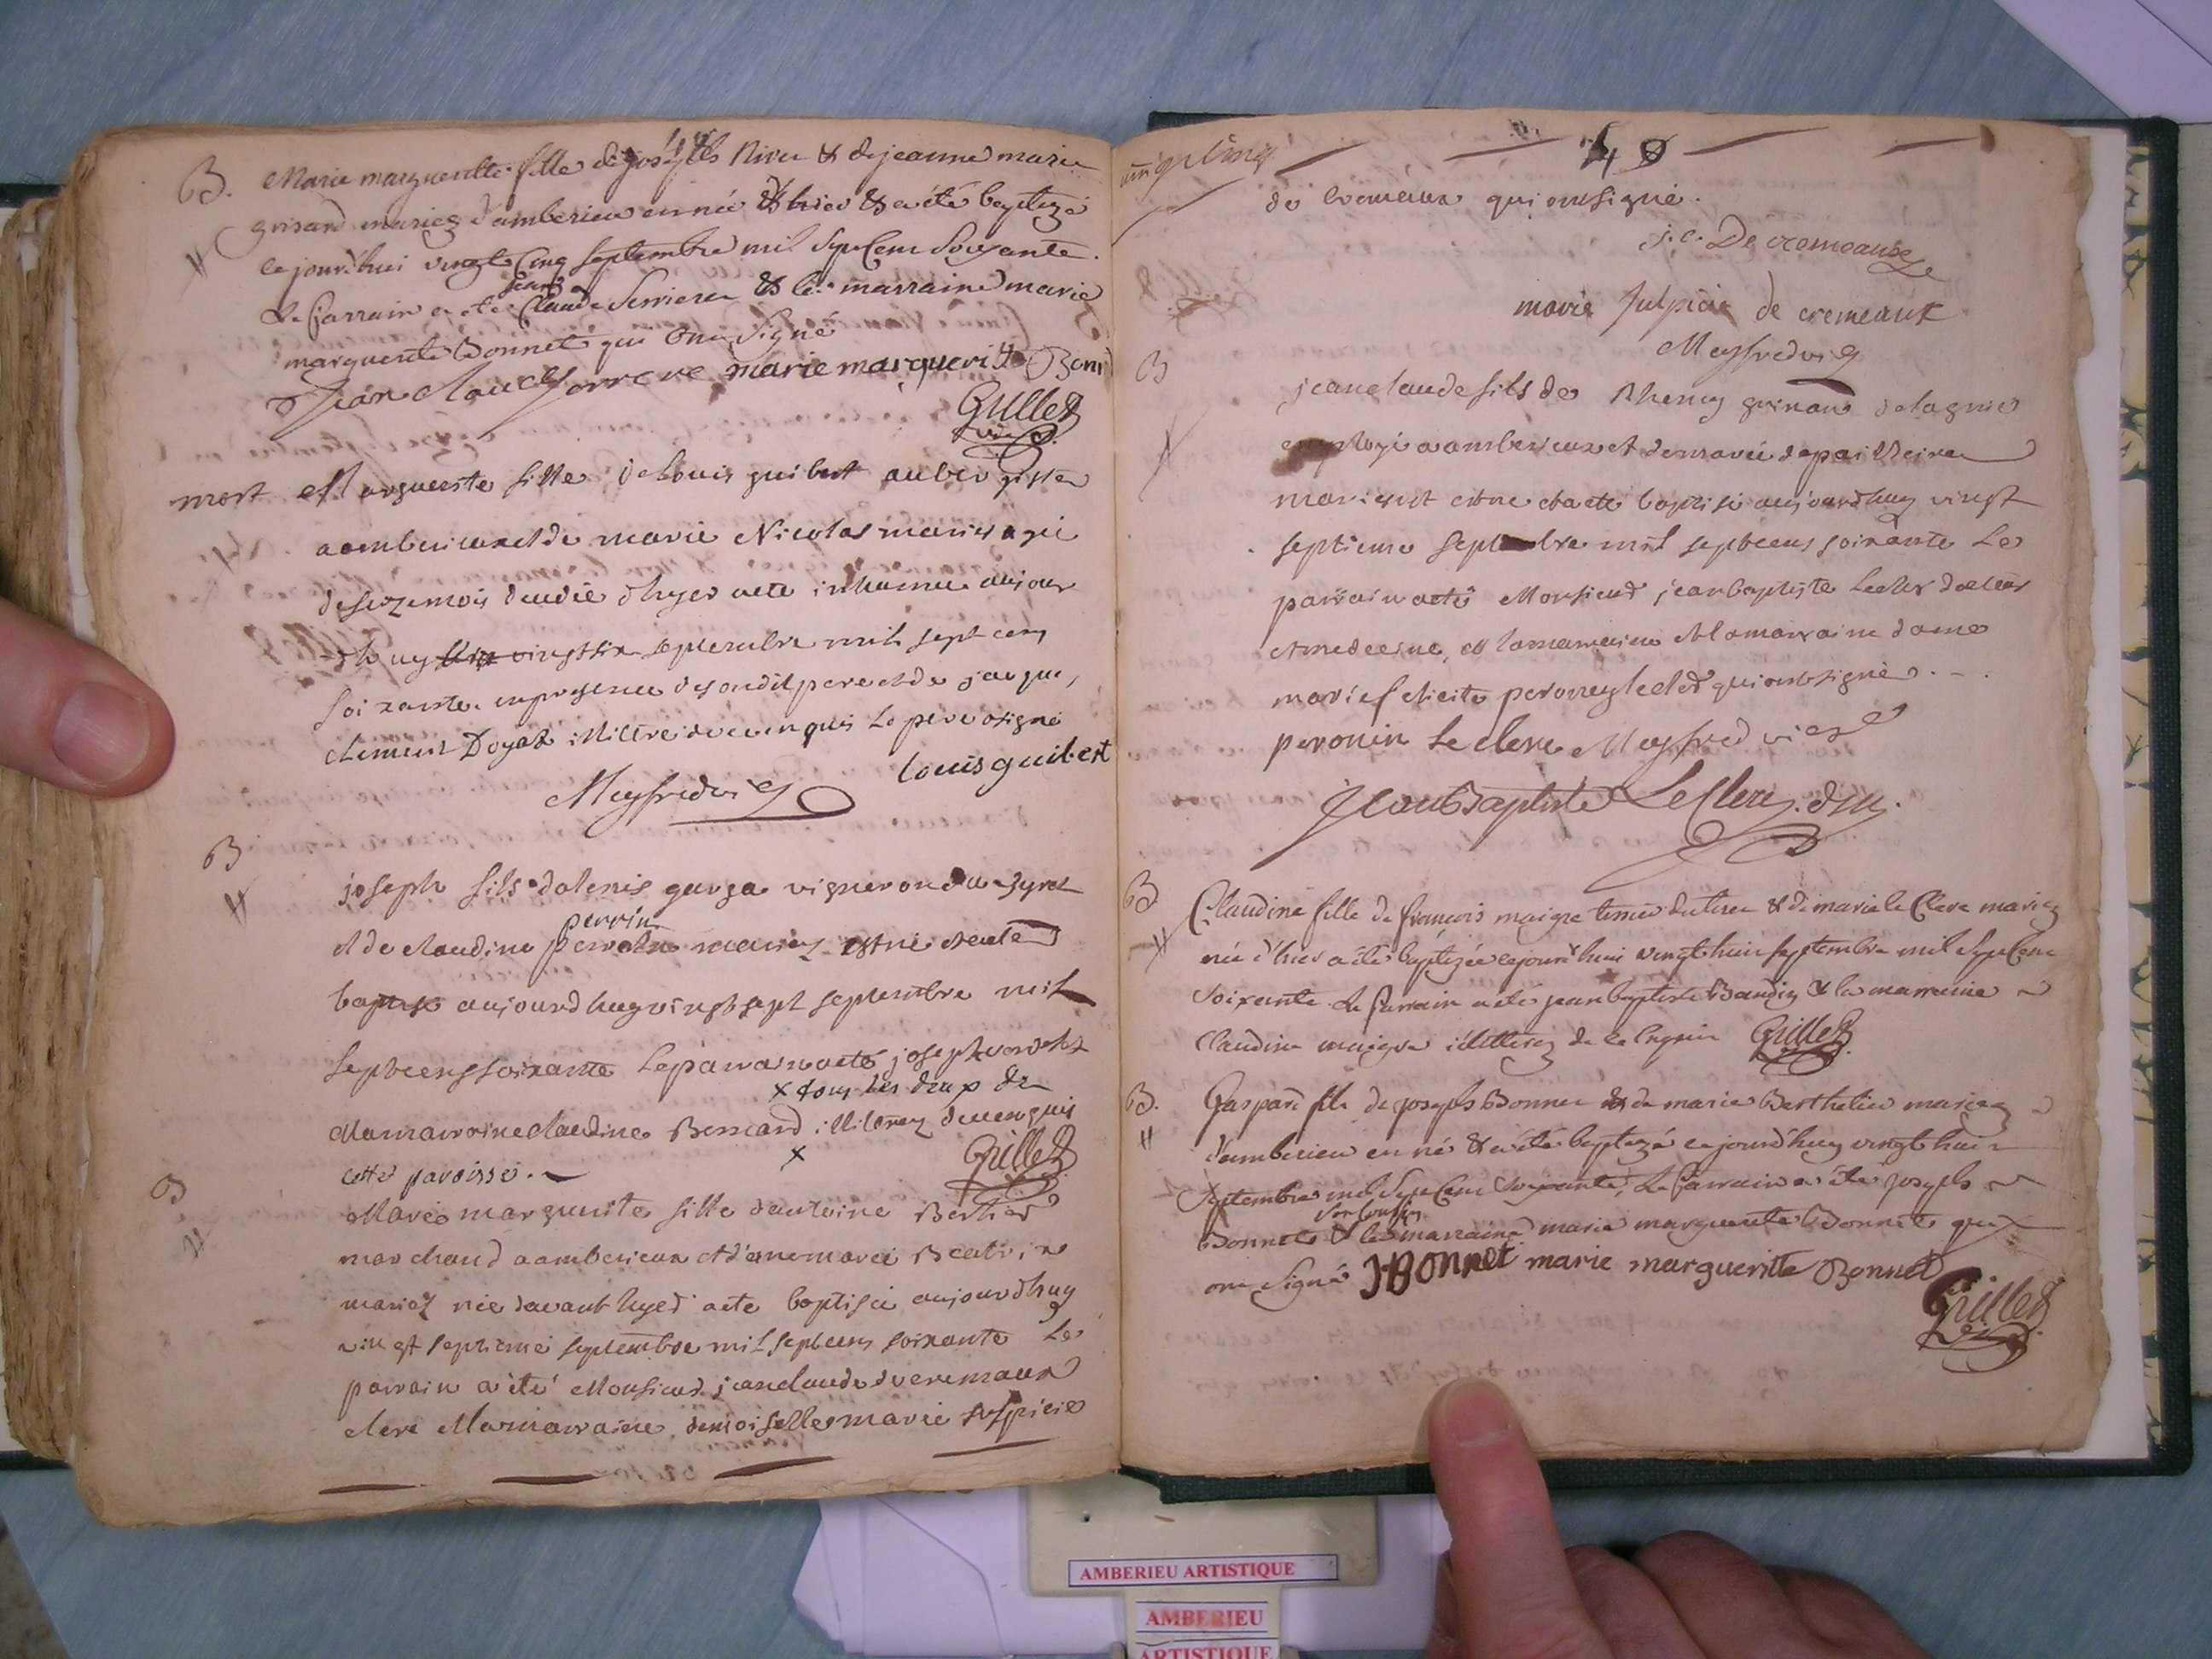 B. Marie margueritte fille de joseph River & de jeanne marie
grisard mariez d'amberieu en née d'hier & a été baptizé
ce jourd'hui vingt Cinq septembre mil sept Cent Soixante.
Le Parrain a été jean Claude Serriere & la marraine marie
marguerite Bonnet qui ont Signé
Jean Claude Serreere marie margueritte Bonn
Grillet
vic.
mort Marguerite fille de Louis guibert aubergiste
a amberieux et de marie Nicolas mariés agée
de seize mois decedée d'hyer a ete inhumée aujour
d'huy vingt six septembre mil sept cens
soixante en presence de sondit pere et de jacque
clement Doyat illitré de ce enquis le pere a signé
louis guibert
Meyfred vic
B joseph fils d'alexis garza vigneron du
et de claudine perrin mariez est né et a eté
baptisé aujourd'huy vingt sept septembre mil
sept cens soixante Le parrain a eté joseph
x tous les deux de
et la marraine claudine Bernard illitérez de ce enquis
x
cette paroisse.
Grillet
B Marie marguerite fille d'antoine Bertier
marchand a amberieux et d'anne marie Beatrix
mariez née d'avant hyer a ete baptisée aujourd'huy
vingt septieme septembre mil sept cens soixante Le
parrain a été Monsieur jean claude de cremeaux
clerc et la marraine demoiselle marie sulpicie
40
de cremeaux qui ont signé.
j. c. De cremeaux
marie sulpicie de cremeaux
Meyfred vic
B jean claude fils de Rhemy guinand de lagnieu
employé a amberieux et de marie
mariez est né et a eté baptisé aujourd'huy vingt
septieme septembre mil sept cens soixante Le
parrain a eté Monsieur jean baptiste Leclerc docteur
en medecine, et la marraine dame
marie felicité peronney leclerc qui ont signé.
peronin le clerc Meyfred vic
Jean Baptiste LeClerc. d.m.
B Claudine fille de françois maigre & de marie le Clerc mariez
née d'hier a été baptizée cejourd'hui vingt huit septembre mil sept Cent
Soixante. Le Parrain a été jean baptiste Baudin & la marraine
Claudine maigre illitterez de ce Enquis Grillet
B. Gaspard fils de joseph Bonnet & de marie Berthelier mariez
d'amberieu en né & a été baptizé ce jourd'huy vingt huit
septembre mil sept Cent soixante, Le Parrain a été joseph
Bonnet son cousin & la marraine marie marguerite Bonnet qui
ont signé J. BONNet marie margueritte Bonnet
Grillet
vic.
AMBERIEU ARTISTIQUE
AMBERIEU
ARTISTIQUE